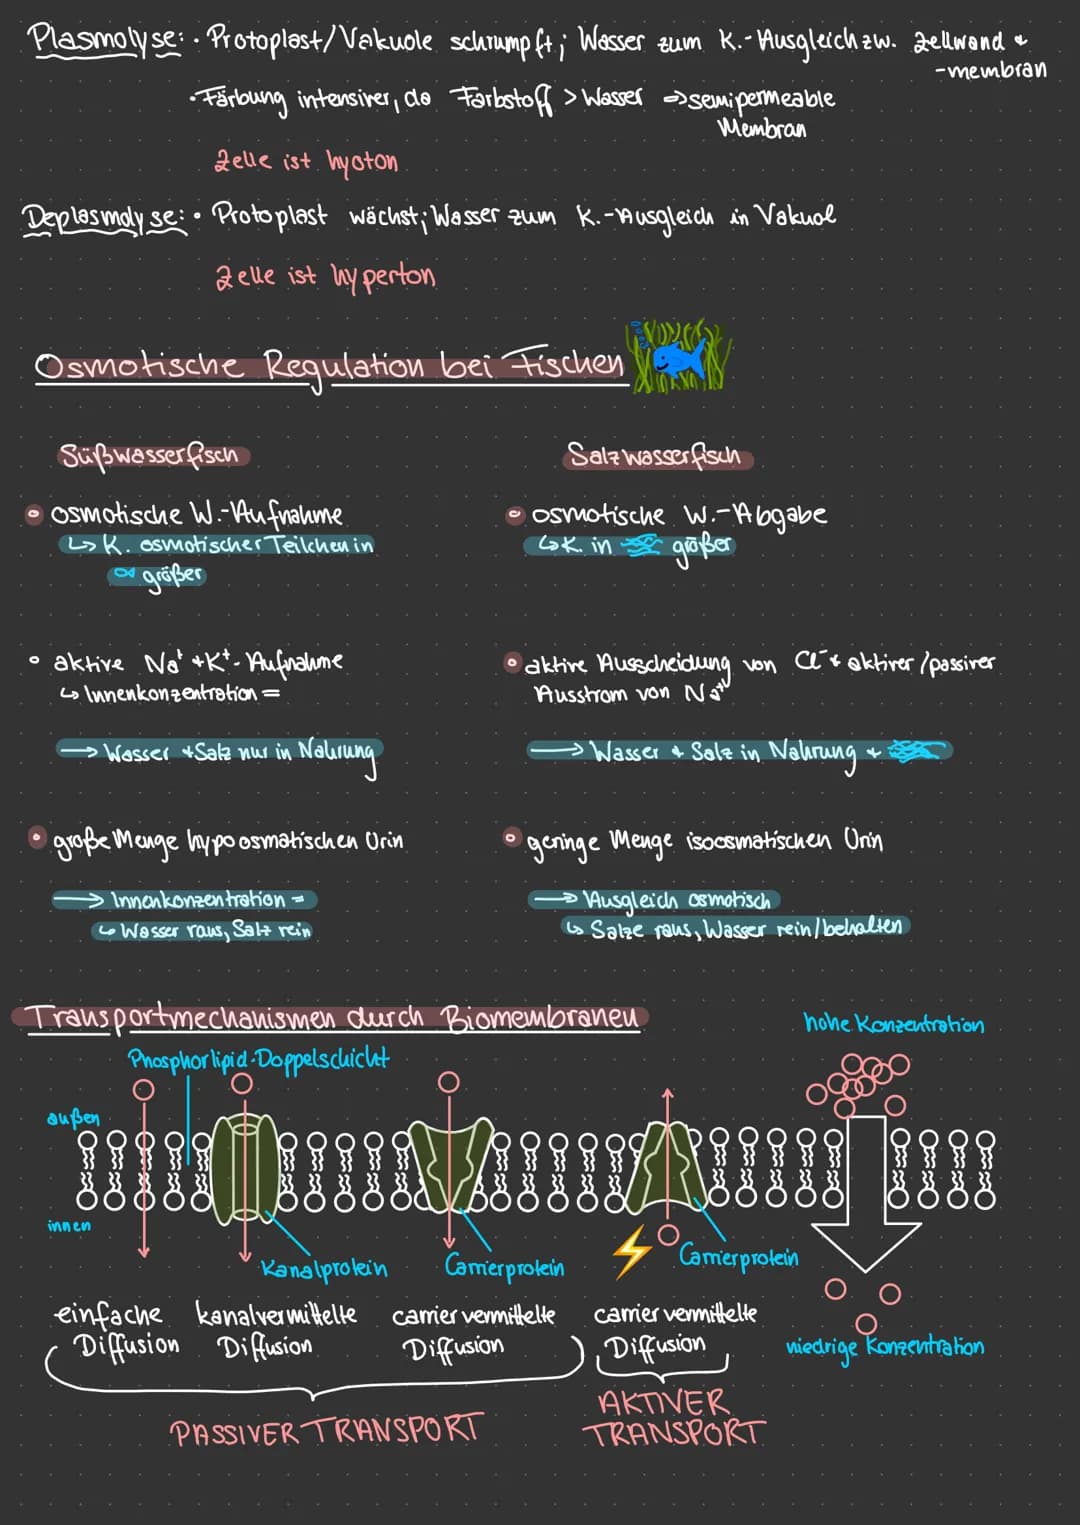 Plasmolyse: • Protoplast/Vakuole schrumpft; Wasser zum K.-Ausgleich zw. Zellwand +
-membran
• Färbung intensiver, da Farbstoff > Wasser ⇒ semipermeable
Membran
Zelle ist hyoton
Deplasmolyse: • Protoplast wächst; Wasser zum K.-Ausgleich in Vakuol
Zelle ist hyperton
Osmotische Regulation bei Fischen
Süßwasserfisch
• osmotische W.-Aufnahme
↳ K. osmotischer Teilchen in
größer
• aktive Na⁺ + K⁺-Aufnahme
↳ Innenkonzentration =
→ Wasser + Salz nur in Nahrung
• große Menge hypoosmatischen Urin
→ Innenkonzentration =
↳ Wasser raus, Salz rein
Salzwasserfisch
• osmotische W.-Abgabe
↳ K. in größer
• aktive Ausscheidung von Cl⁻ + aktirer/passirer
Ausstrom von Na⁺
→ Wasser + Salz in Nahrung +
• geringe Menge isoosmatischen Urin
→ Ausgleich osmotisch
↳ Salze raus, Wasser rein/behalten
Transportmechanismen durch Biomembranen
hohe Konzentration
Phosphorlipid-Doppelschicht
außen
innen
Kanalprotein
Carrierprotein
Carrierprotein
einfache
Diffusion
kanalvermittelte
Diffusion
carriervermittelte
Diffusion
carriervermittelte
Diffusion
niedrige Konzentration
PASSIVER TRANSPORT
AKTIVER
TRANSPORT